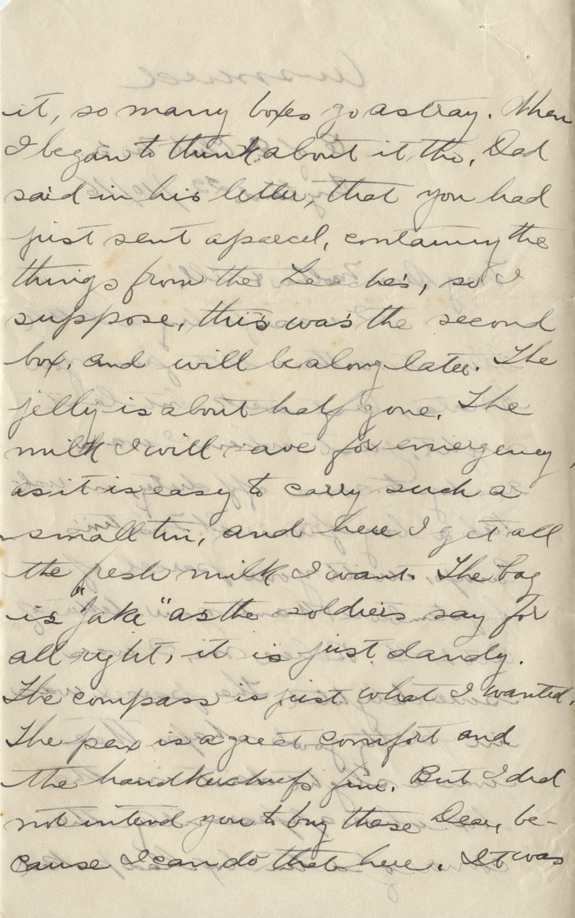 it, so many boxes go astray. When
I began to think about it tho, Dad
said in his letter, that you had
just sent a parcel, containing the
things from the Leaches, so I
suppose, this was the second
box, and will be along later. The
jelly is about half gone. The
milk I will save for emergency,
as it is easy to carry such a
small tin, and here I get all
the fresh milk I want. The bag
is "jake" as the soldiers say for
all right, it is just dandy.
The compass is just what I wanted.
The pen is a great comfort and
the handkerchiefs fine. But I did
not intend you to buy those Dear, be-
cause I can do that here. It was